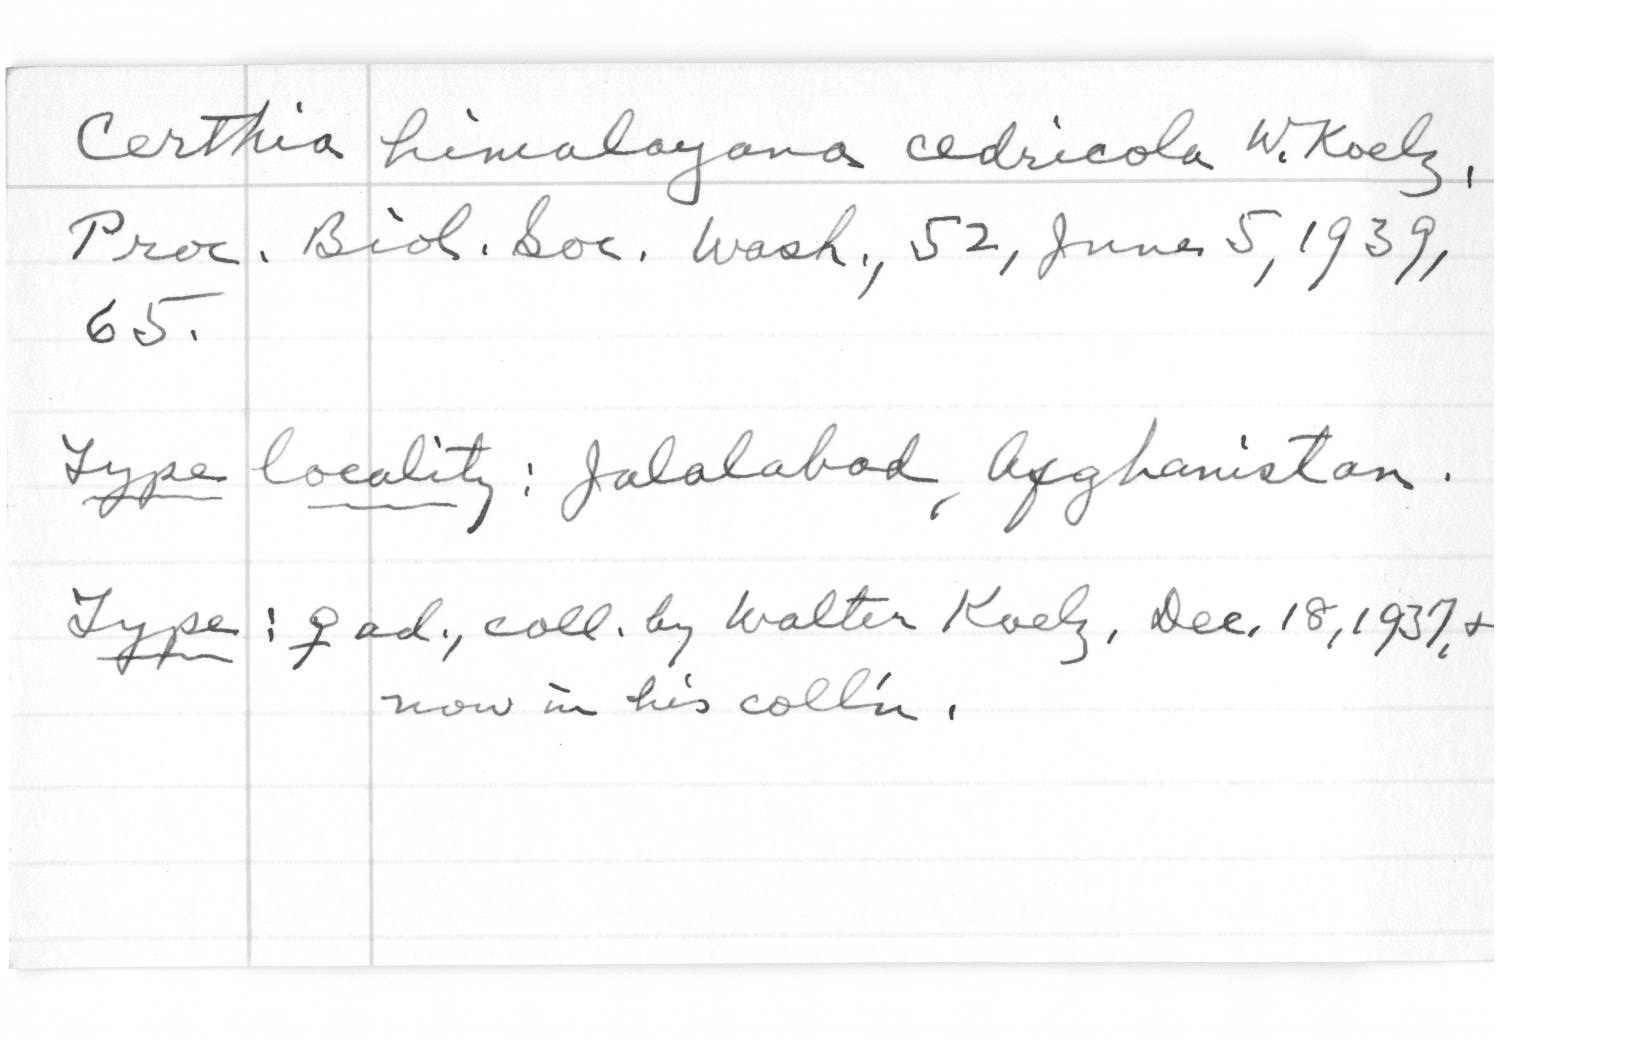 Certhia himalayana cedricola W. Koelz,
Proc. Biol. Soc. Wash., 52, June 5, 1939,
65.
Type locality: Jalalabad, Afghanistan.
Type: ♀ ad., coll. by Walter Koelz, Dec. 18, 1937, &
now in his coll'n.